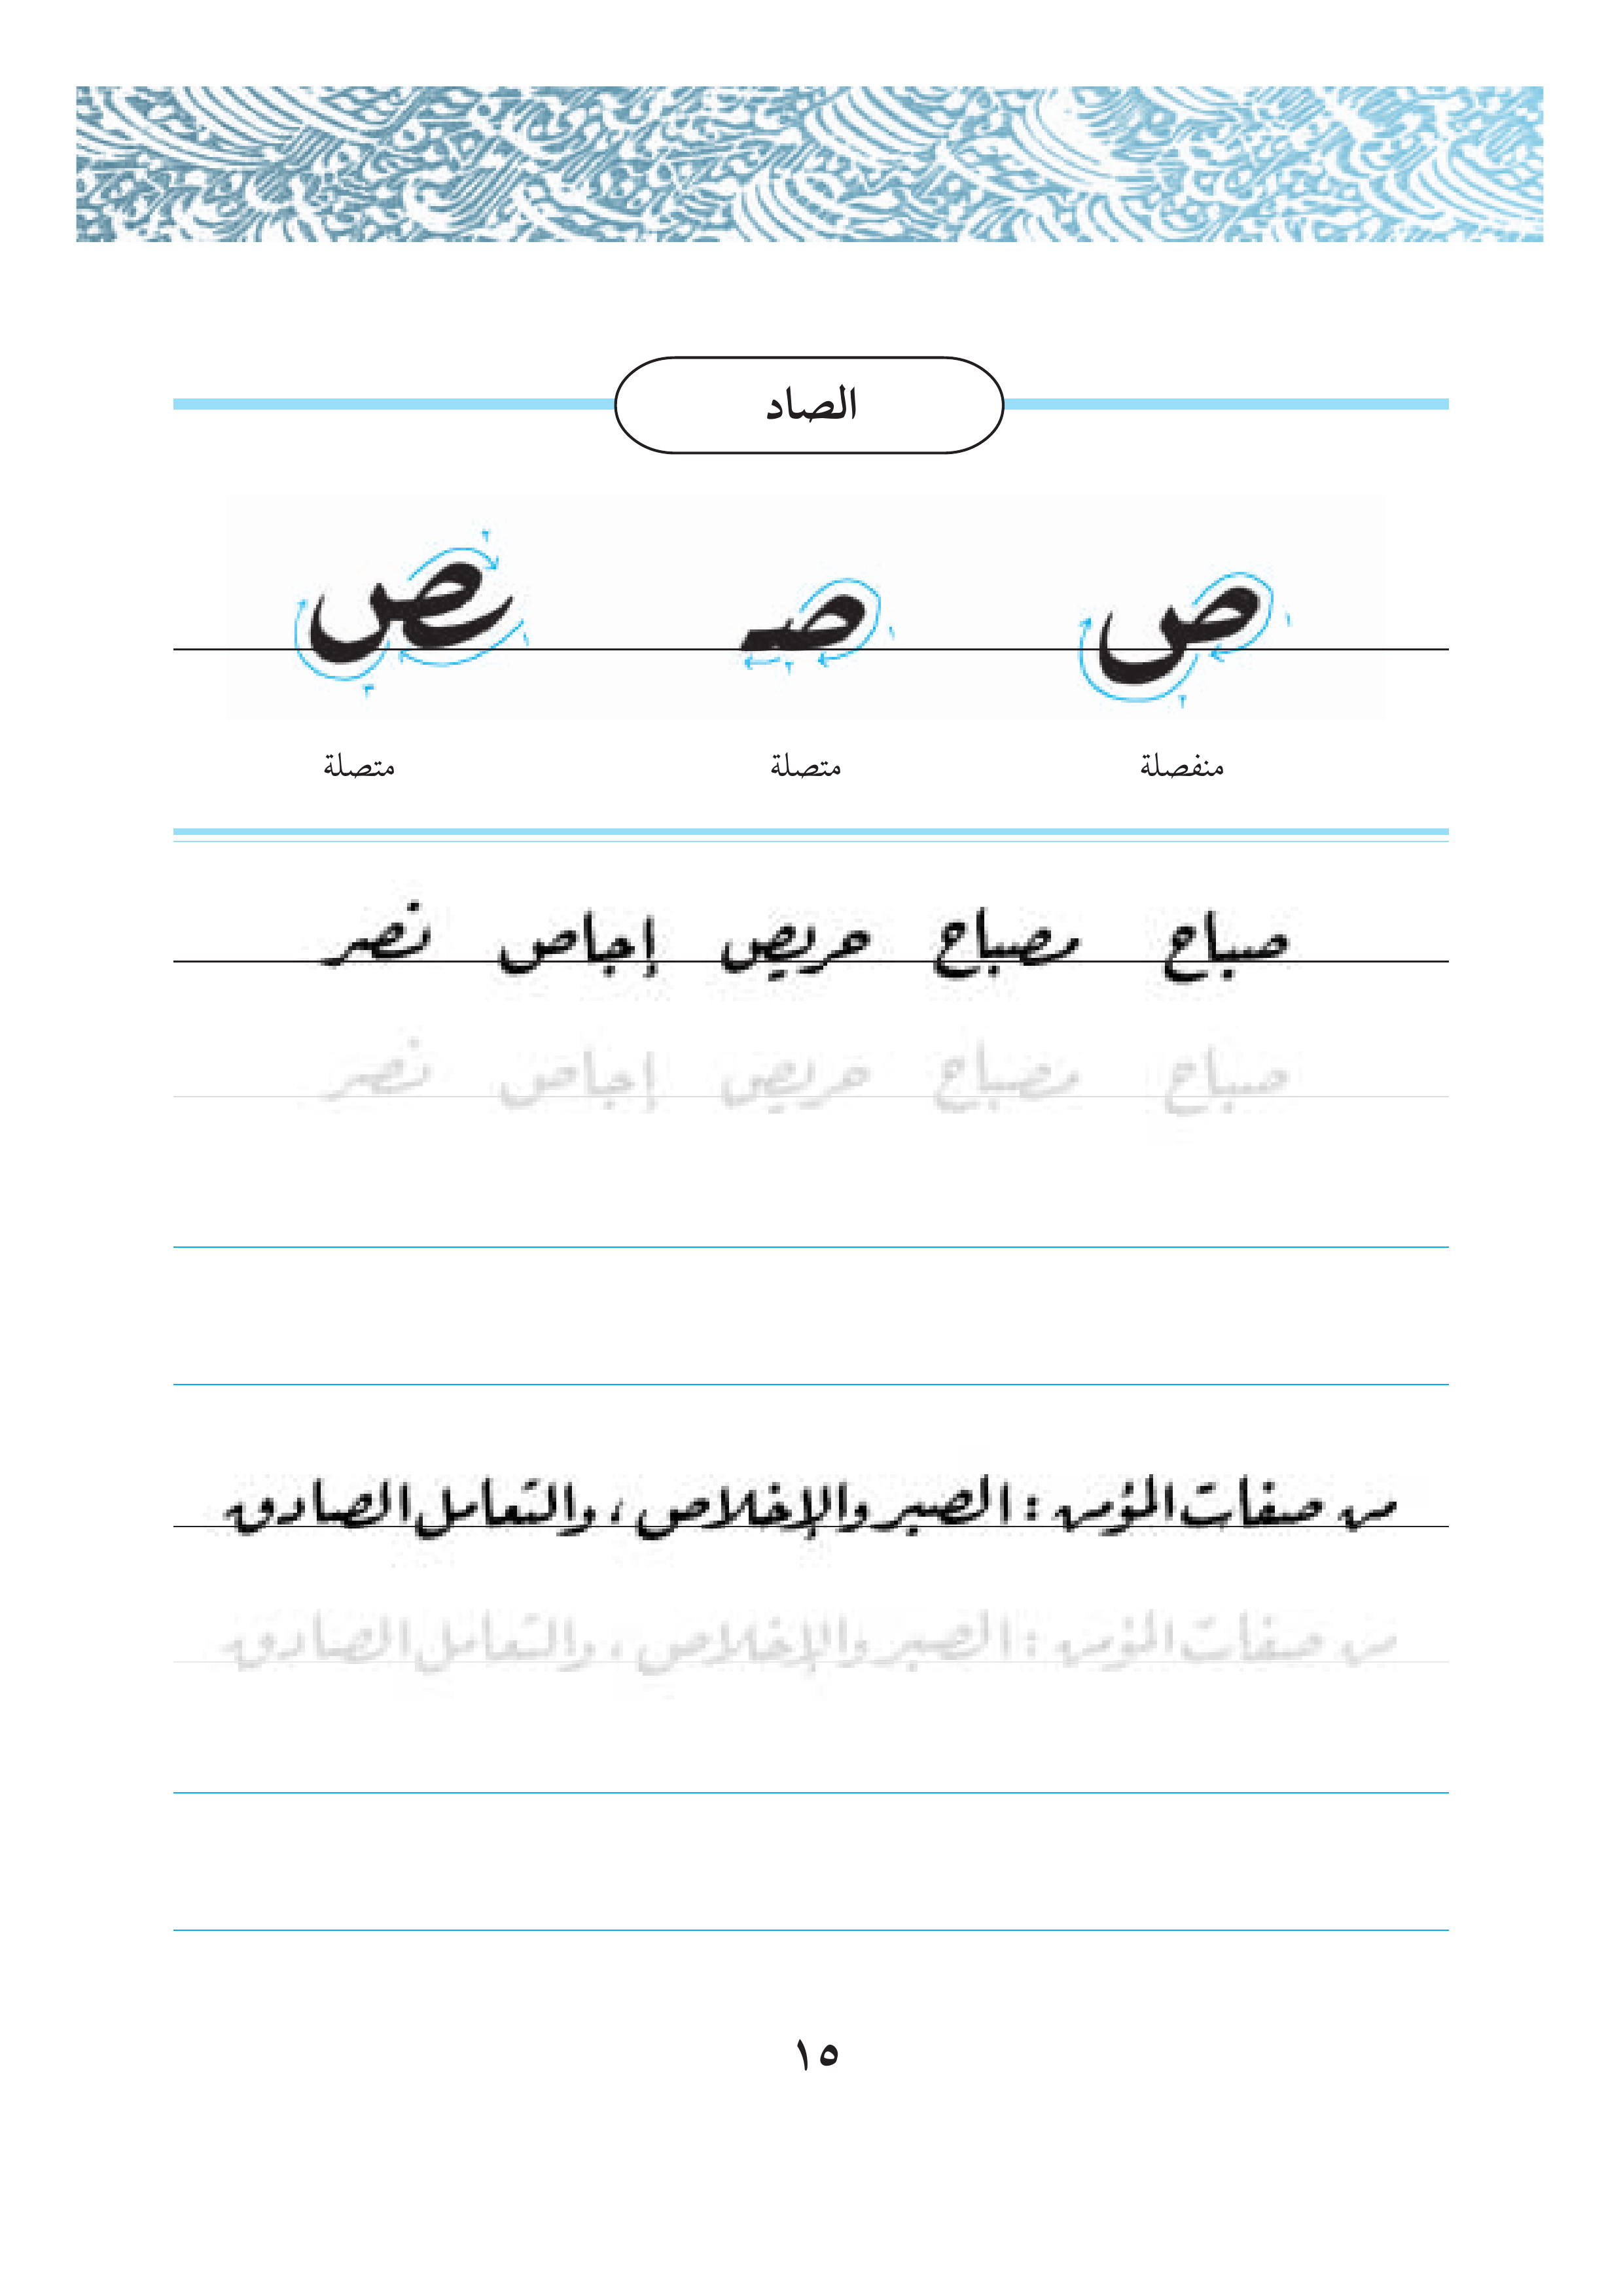 الصاد
ص صـ ـص
منفصلة متصلة متصلة
صباح مصباح حريص إجاص نصر
صباح مصباح حريص إجاص نصر
من صفات المؤمن : الصبر والإخلاص ، والتعامل الصادق
من صفات المؤمن : الصبر والإخلاص ، والتعامل الصادق
١٥